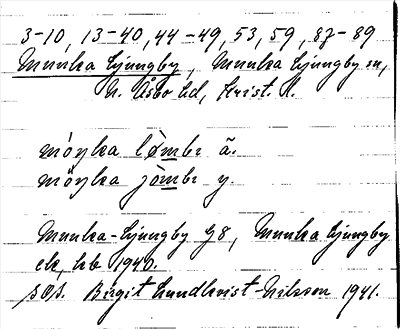 3-10, 13-40, 44-49, 53, 59, 87-89
Munka Ljungby, Munka Ljungby sn,
N. Åsbo hd, Krist. l.
móŋka lòmbı ã.
mòŋka jòmbı y.
Munka-Ljungby 78, Munka Ljungby
ck, kb 1940.
SOS. Birgit Lundkvist-Nilsson 1941.